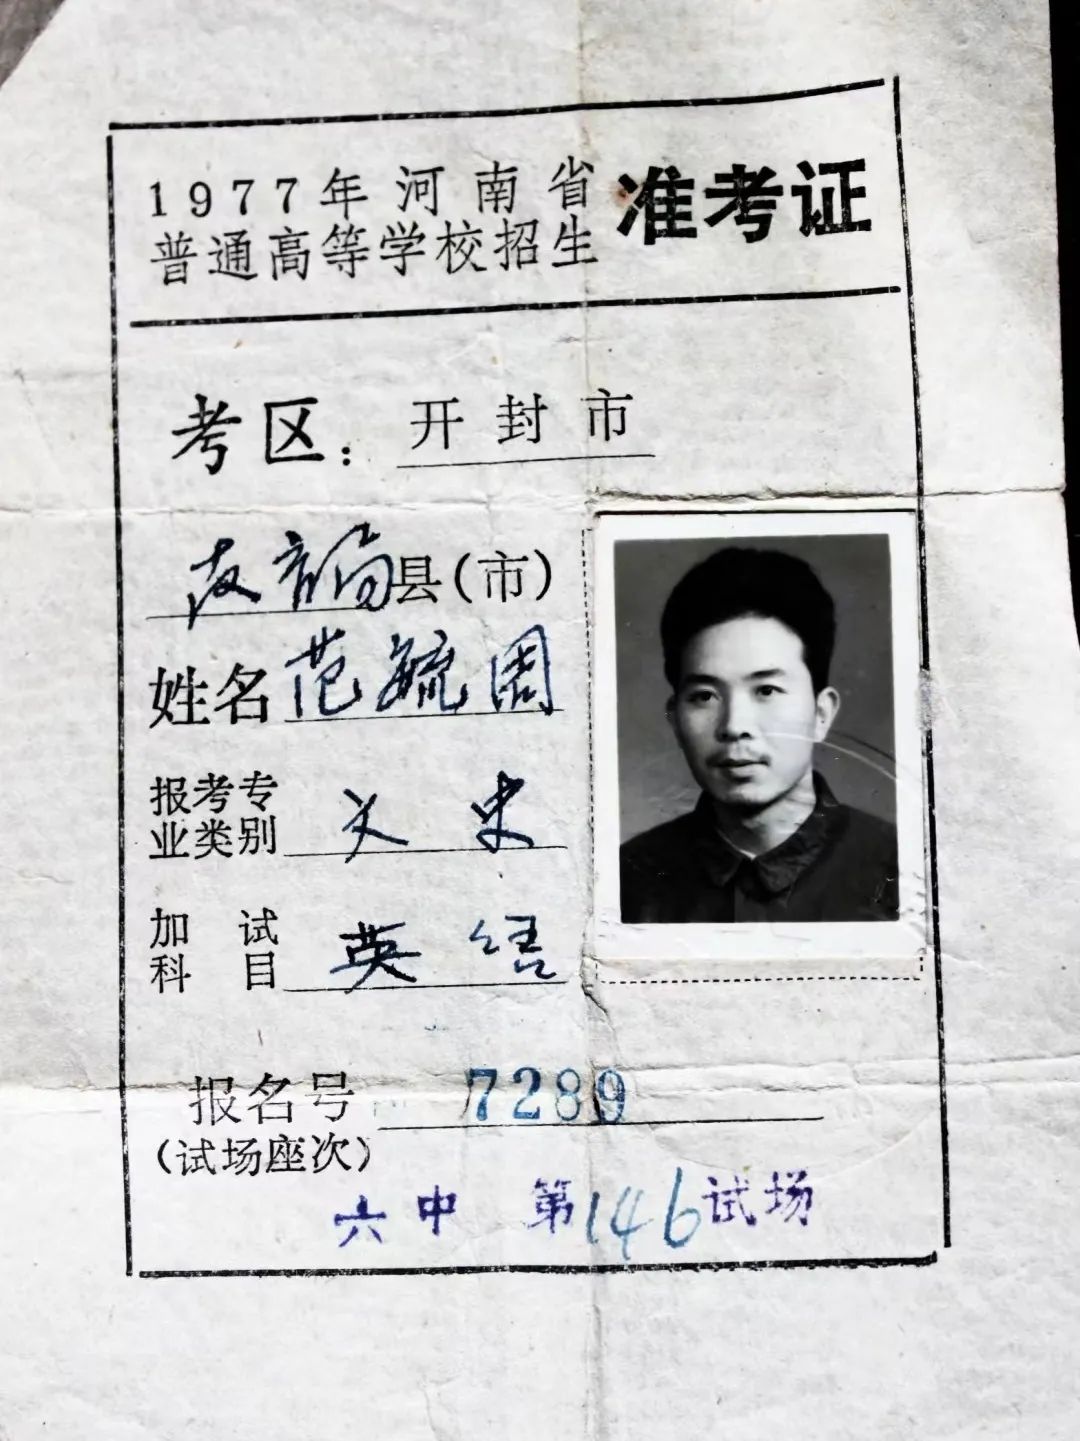 1977年河南省
普通高等学校招生
准考证
考区：开封市
县(市)
姓名 范毓周
报考专业类别 文史
加试科目 英语
报名号 7289
(试场座次)
六中 第146试场